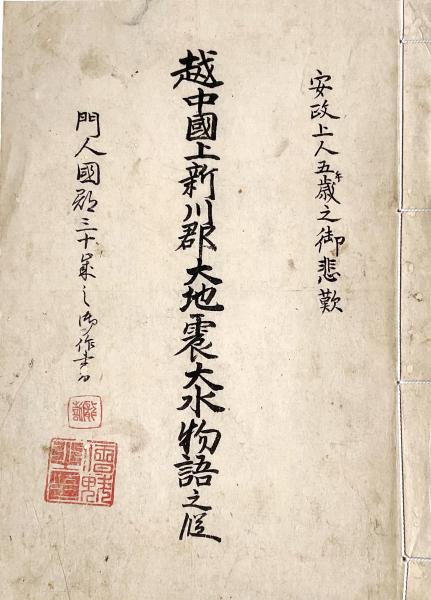 安政上人五午歳之御悲歎
越中國上新川郡大地震大水物語之
門人國郡三十歳之御作